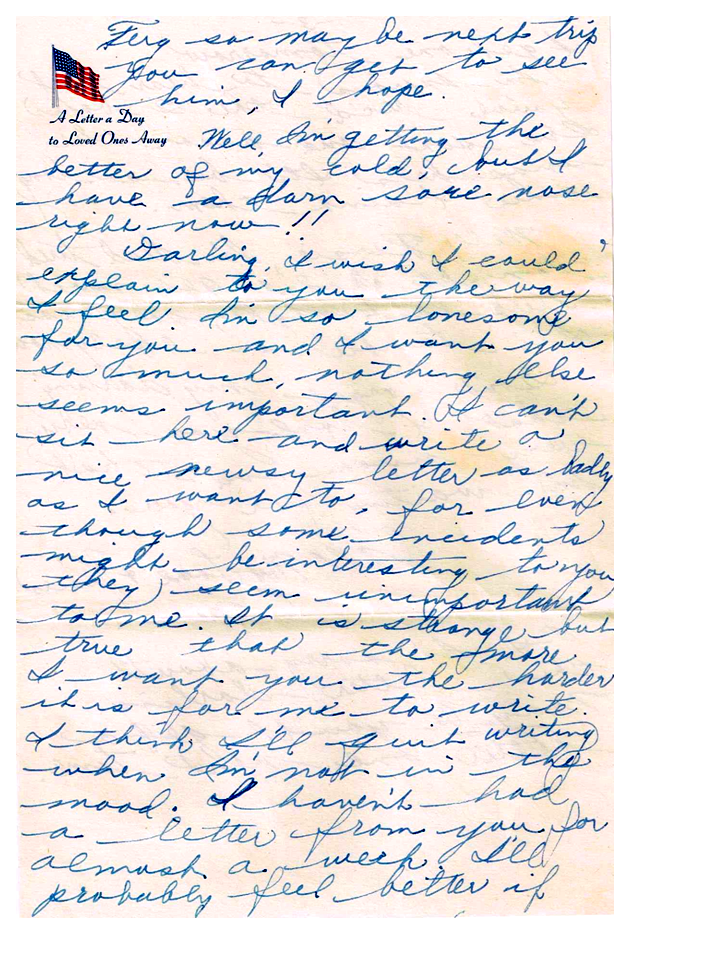 Ferg so may be next trip
you can get to see
him, I hope.
A Letter a Day
to Loved Ones Away
Well, I'm getting the
better of my cold, but I
have a darn sore nose
right now!!
Darling, I wish I could
explain to you the way
I feel. I'm so lonesome
for you and I want you
so much, nothing else
seems important. I can't
sit here and write a
nice newsy letter as badly
as I want to, for even
though some incidents
might be interesting to you
they seem unimportant
to me. It is strange but
true that the more
I want you the harder
it is for me to write.
I think I'll quit writing
when I'm not in the
mood. I haven't had
a letter from you for
almost a week. I'll
probably feel better if